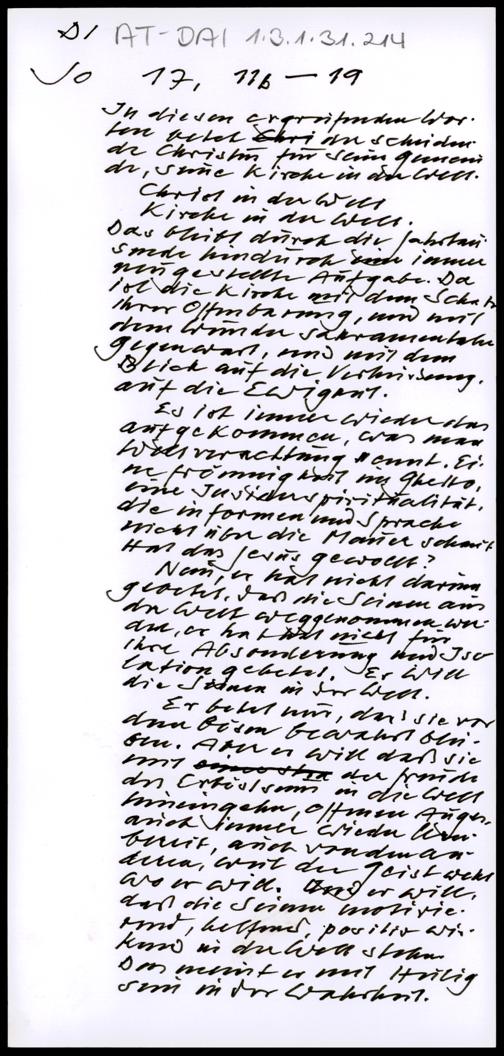 DI AT-DAI 1.3.1.31.214
Jo 17, 11b – 19
In diesen ergreifenden Wor-
ten betet Chri der scheiden-
de Christus für seine Gemein-
de, seine Kirche in der Welt.
Christ in der Welt
Kirche in der Welt.
Das bleibt durch die Jahrtau-
sende hindurch immer
neu gestellte Aufgabe. Da
ist die Kirche mit dem Schatz
ihrer Offenbarung, und mit
dem Wunder sakramentaler
Gegenwart, und mit dem
Blick auf die Verheissung,
auf die Ewigkeit.
Es ist immer wieder das
aufgekommen, was man
Weltverachtung nennt. Ei-
ne Frömmigkeit im Ghetto,
eine Insiderspiritualität,
die in Formen und Sprache
nicht über die Mauer schaut.
Hat das Jesus gewollt?
Nein, er hat nicht darum
gebetet, daß die Seinen aus
der Welt weggenommen wer-
den, er hat nicht für
ihre Absonderung und Iso-
lation gebetet. Er will
die Seinen in der Welt.
Er betet nur, dass sie vor
dem Bösen bewahrt blei-
ben. Aber er will daß sie
mit der Freude
des Erlöstseins in die Welt
hineingehn, offenen Auges,
auch immer wieder lern-
bereit, auch von den an-
deren, weil der Geist weht
wo er will. Und er will,
daß die Seinen motivie-
rend, helfend, positiv wir-
kend in der Welt stehn.
Das meint er mit Heilig
sein in der Wahrheit.